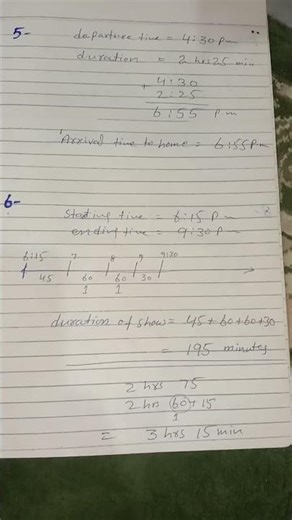 5- departure time = 4:30 pm
duration = 2 hrs 25 min
4:30
+ 2:25
6:55 Pm
Arrived time to home = 6:55 Pm
6-
Starting time = 6:15 Pm
ending time = 9:30 Pm
6:15 7 8 9 9:30
45 60 60 30
1 1
duration of show = 45 + 60 + 60 + 30
= 195 minutes
2 hrs 75
2 hrs (60) + 15
1
= 3 hrs 15 min